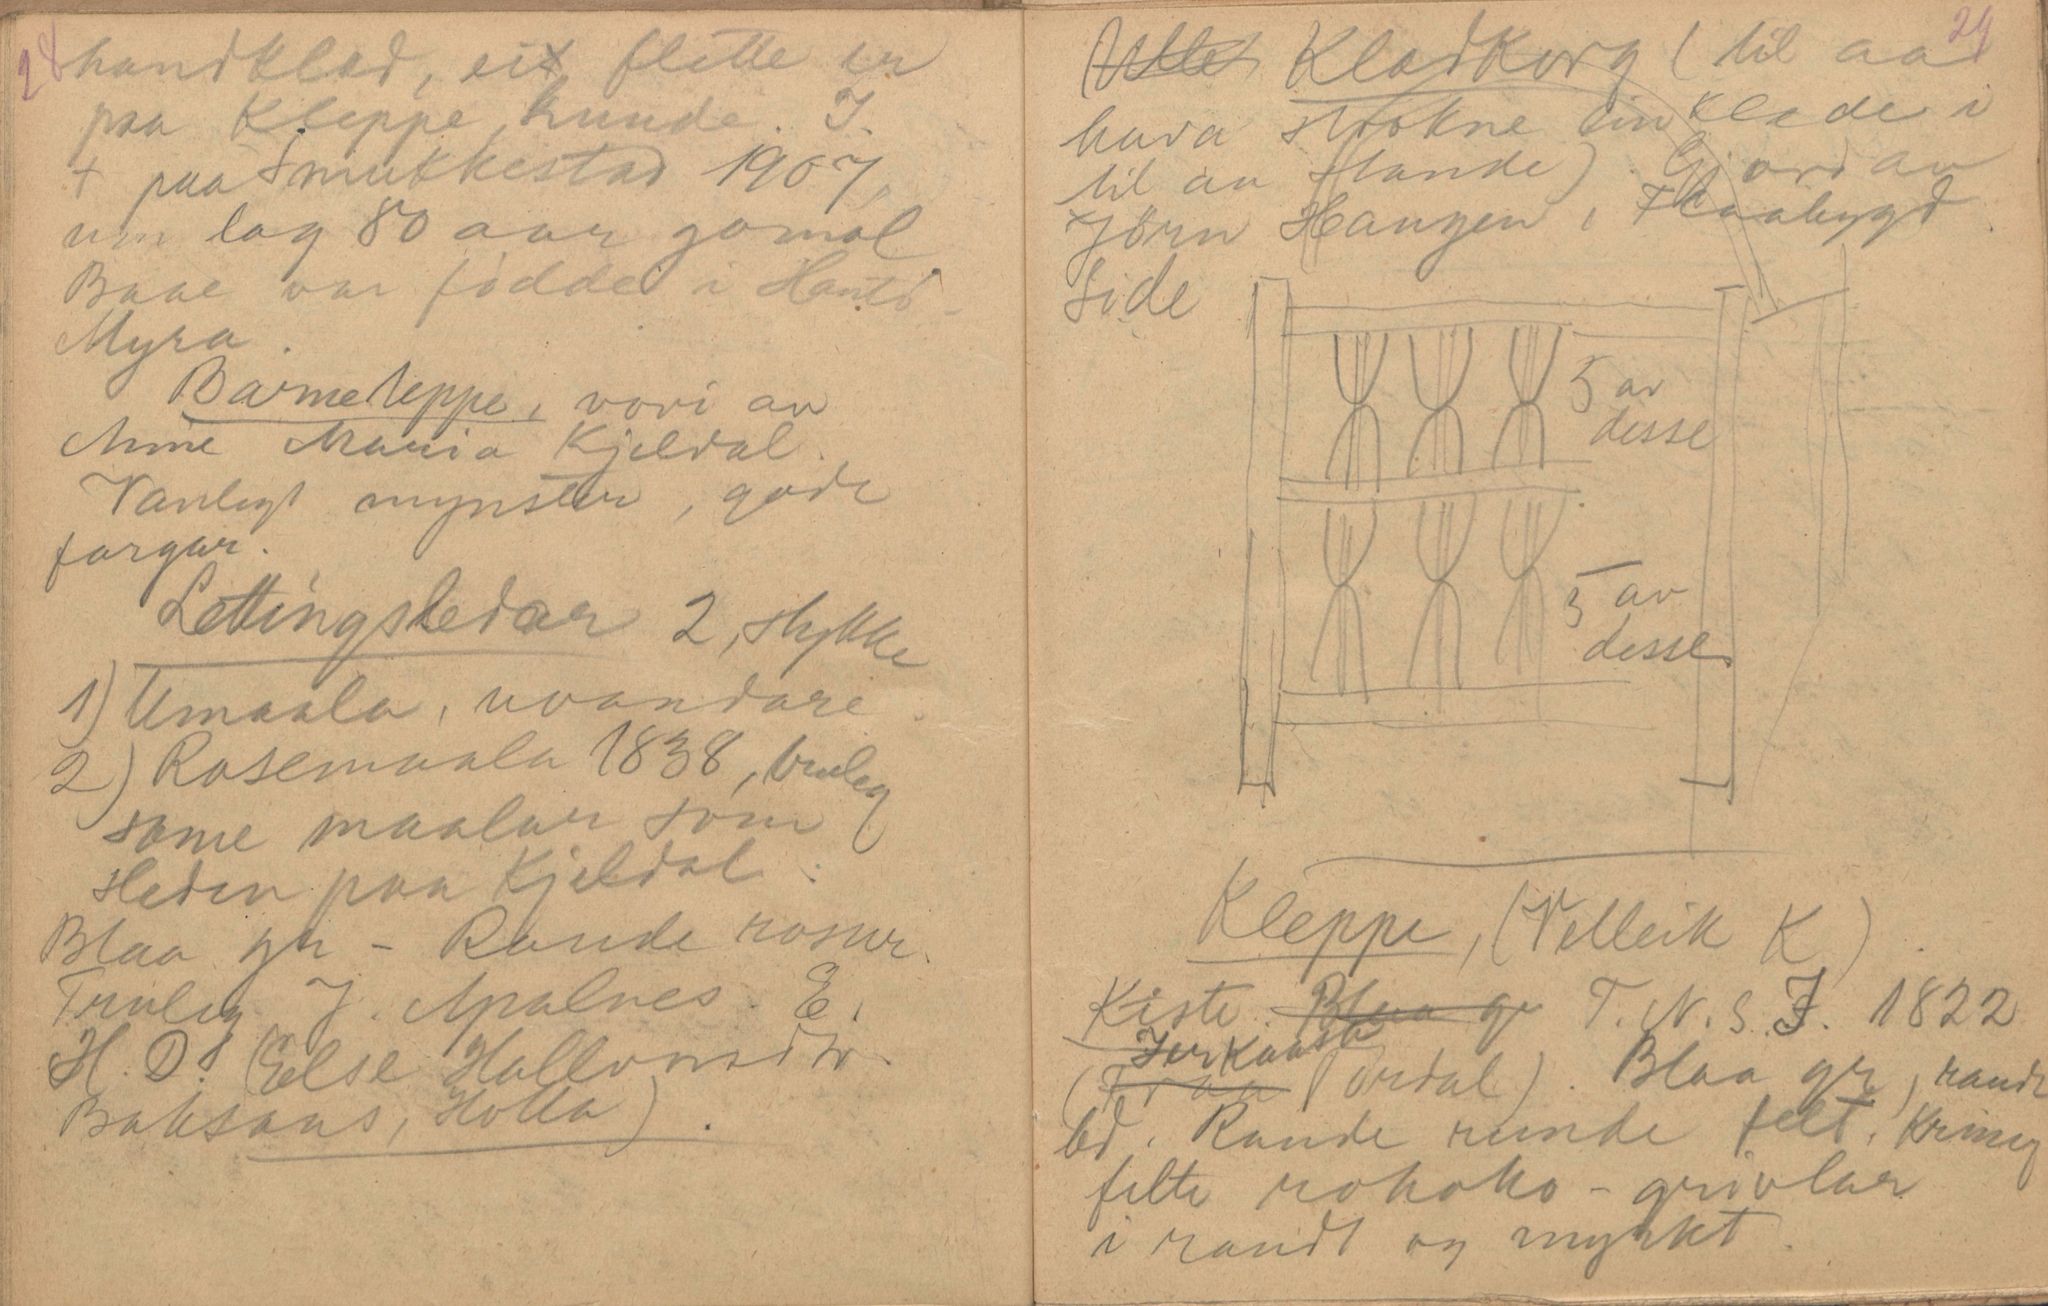 28
handklæd, eit flette er
paa Kleppe, hunde. I.
+ paa Smukkestad 1907,
um lag 80 aar gomol
Baae var fødde i Hants-
Myra.
Barneteppe, vovi av
Anne Maria Kjeldal.
Vanlegt mynster, gode
fargar.
Lettingsledar 2, stykke
1) Umaala, uvandare.
2) Rosemaala 1838, truleg
same maalar som
sleden paa Kjeldal:
Blaa gr - Raude rosur.
Truleg J. Apalnes. E.
H. D. (Else Hallvorsdtr.
Baksaas, Holla).
29
Klædkorg (til aa
hava strokne linklæde i
til aa stande). Gjord av
Jörn Haugen, Flaabygd.
Side
5 av
desse
5 av
desse
Kleppe, (Velleik K).
Kiste. Blaa gr T. N. S. I. 1822
Jerkaasa
(Traa Tordal). Blaa gr, raude
bd. Raude runde felt. Kring
felte rokoko-grivlar
i raudt og myrkt.